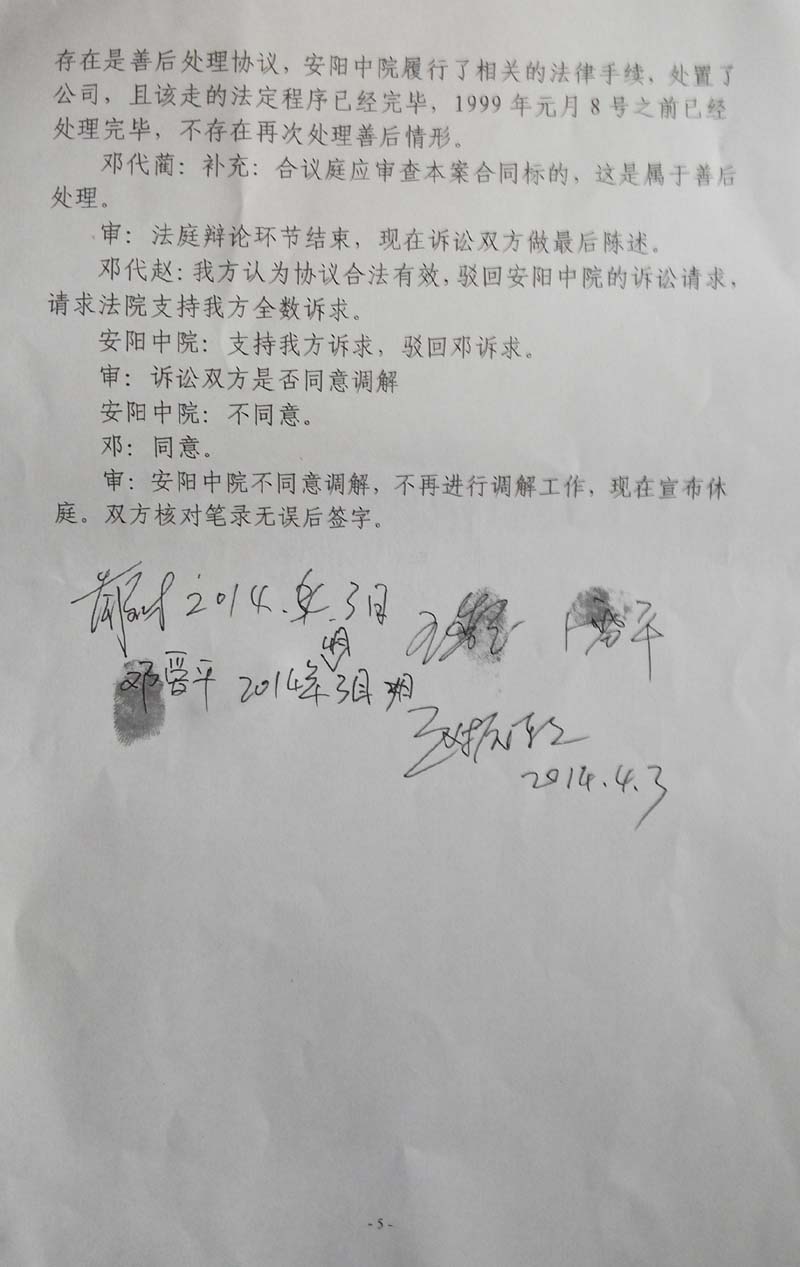 存在是善后处理协议，安阳中院履行了相关的法律手续，处置了
公司，且该走的法定程序已经完毕，1999年元月8号之前已经
处理完毕，不存在再次处理善后情形。
邓代蔺：补充：合议庭应审查本案合同标的，这是属于善后
处理。
审：法庭辩论环节结束，现在诉讼双方做最后陈述。
邓代赵：我方认为协议合法有效，驳回安阳中院的诉讼请求，
请求法院支持我方全数诉求。
安阳中院：支持我方诉求，驳回邓诉求。
审：诉讼双方是否同意调解
安阳中院：不同意。
邓：同意。
审：安阳中院不同意调解，不再进行调解工作，现在宣布休
庭。双方核对笔录无误后签字。
2014.年.3日
4月
邓晋平 2014年3日
2014.4.3
- 5 -